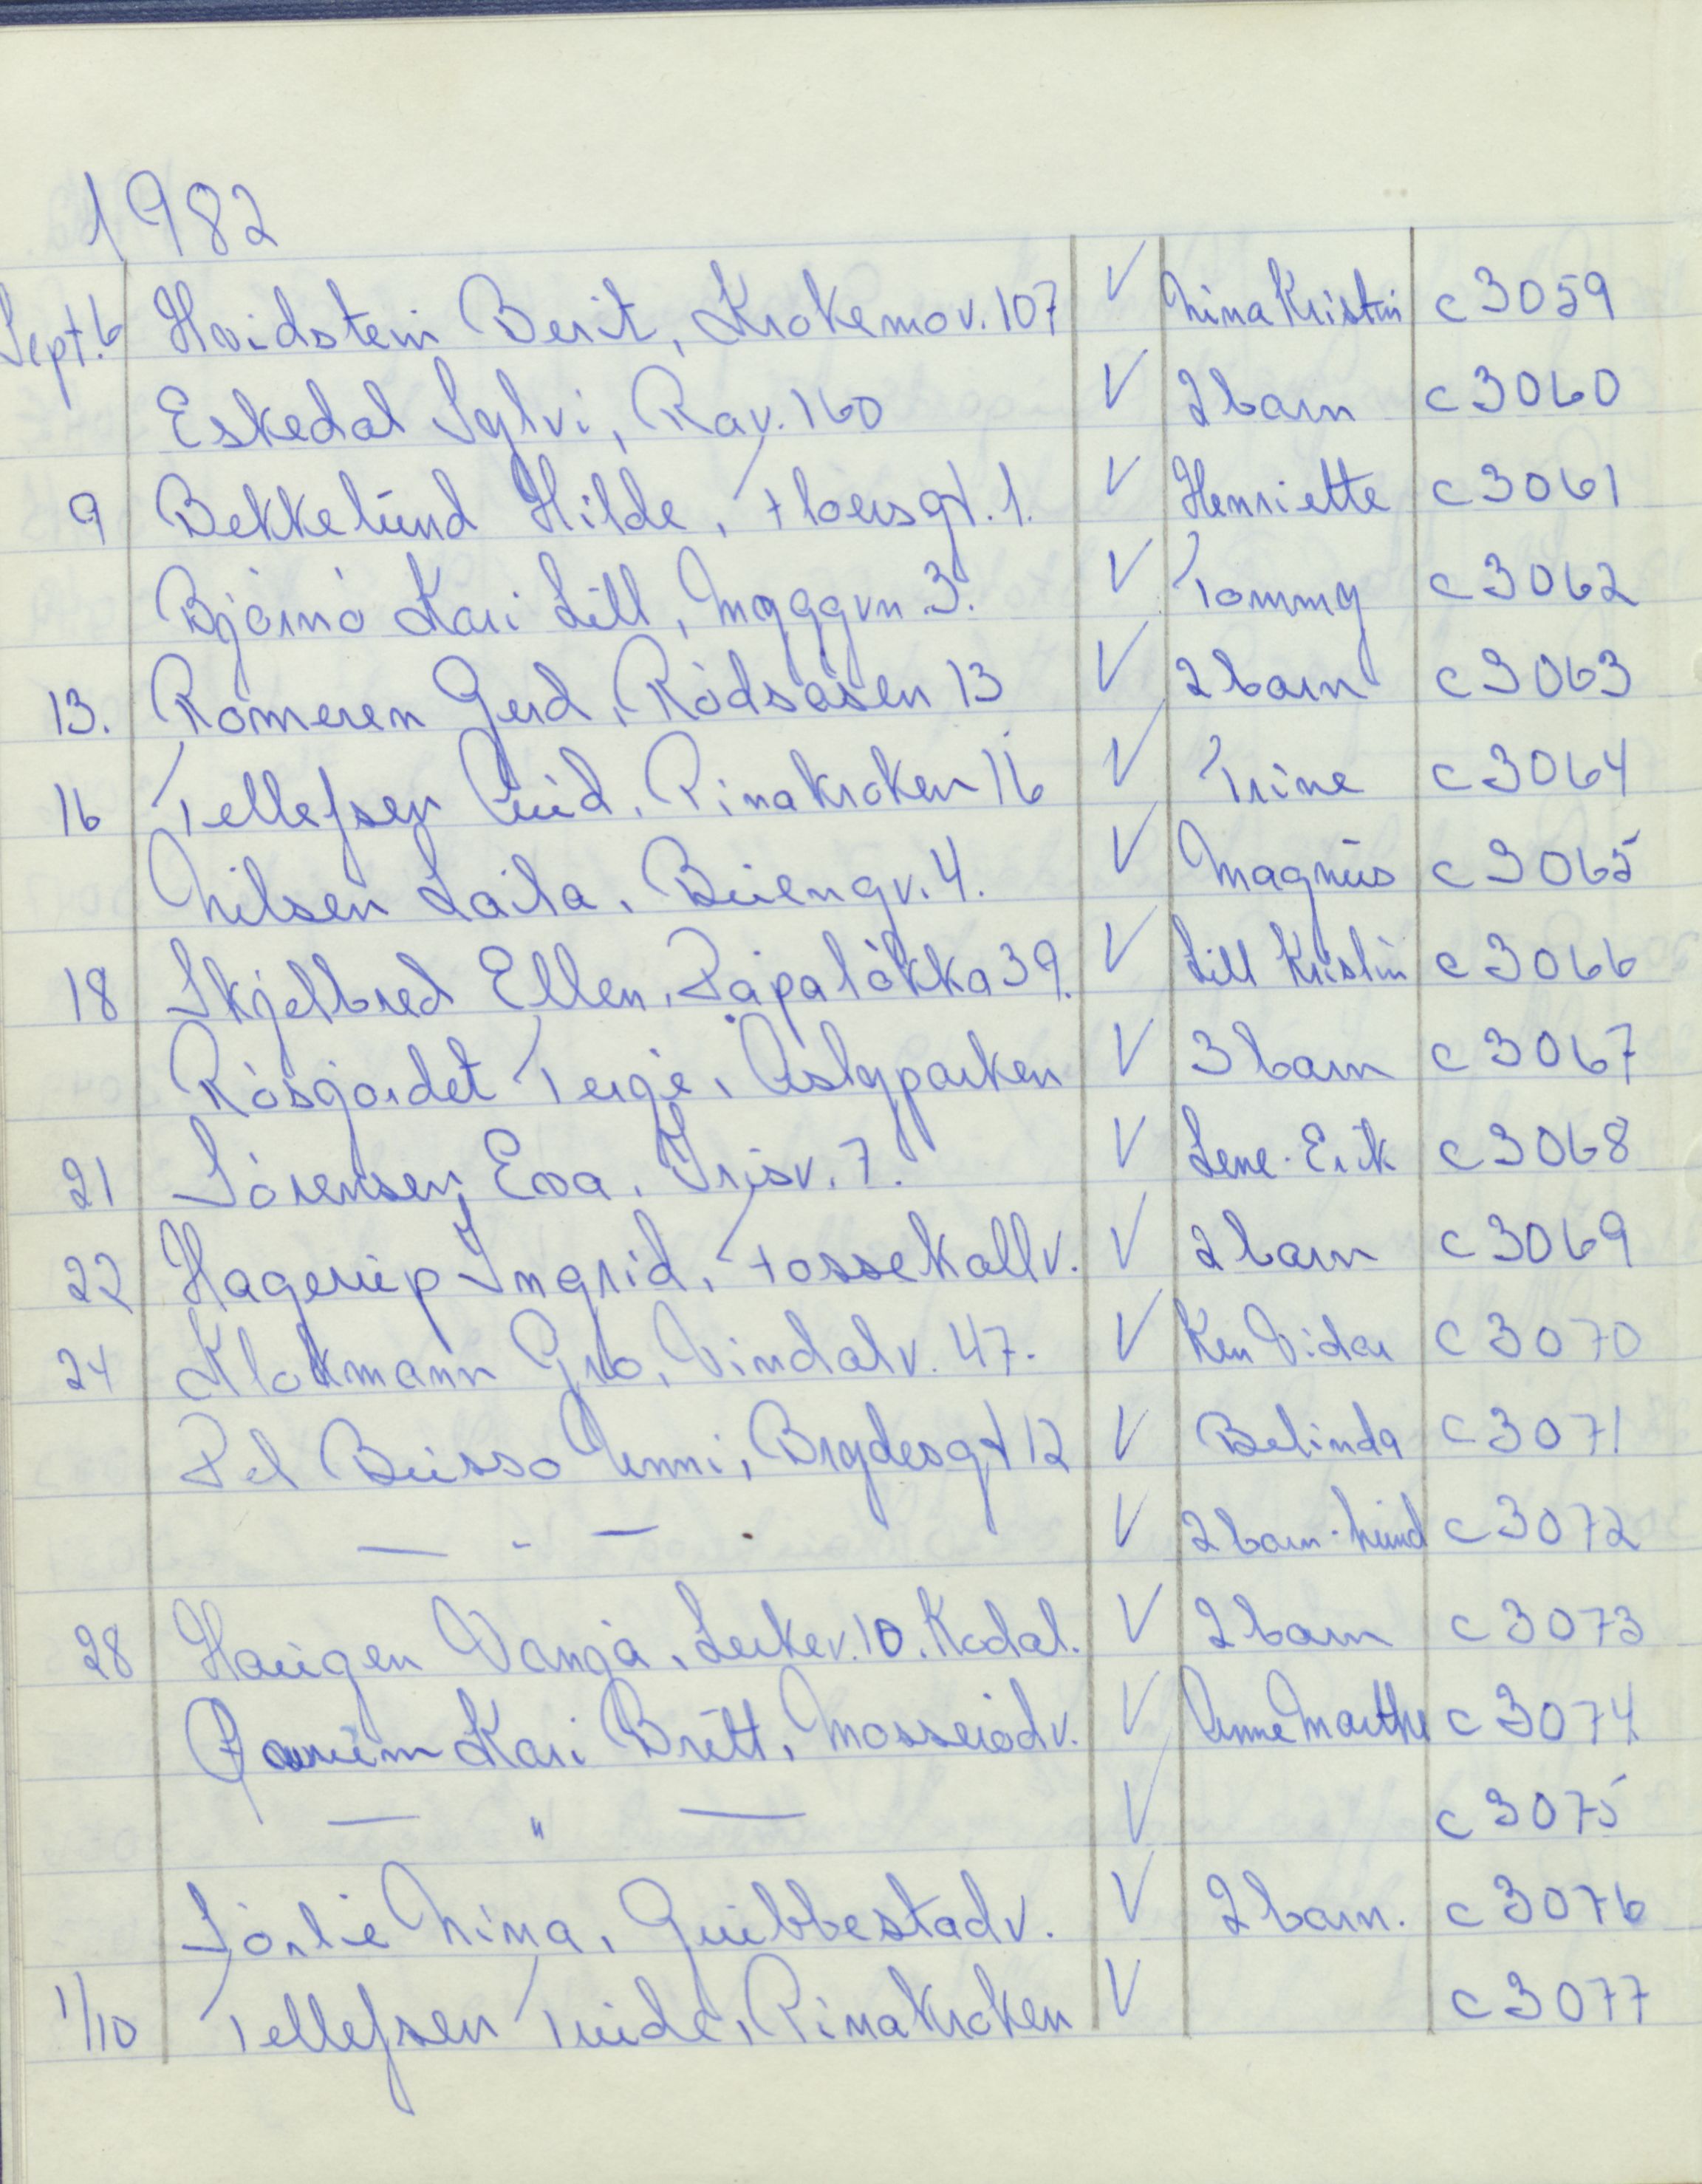 1982
Sept. 6 Hvidstein Berit, Krokemov. 107 V Nina Kristin c 3059
Eskedal Sylvi, Rav. 160 V 2 barn c 3060
9 Bekkelund Hilde, Floersgt. 1. V Henriette c 3061
Bjørnø Kari Lill, Myggvn. 3. V Tommy c 3062
13. Rømeren Gerd, Rødsåsen 13 V 2 barn c 3063
16 Tellefsen Turid, Rinakroken 16 V Trine c 3064
Nilsen Laila, Buengv. 4. V Magnus c 3065
18 Skjelbred Ellen, Papaløkka 39. V Lill Kristin c 3066
Råsgårdet Terje, Åslyparken V 3 barn c 3067
21 Sørensen Eva, Irisv. 7. V Lene - Erik c 3068
22 Hagerup Ingrid, Fossekallv. V 2 barn c 3069
24 Klokmann Gro, Vindalv. 47. V Ken Vidar c 3070
Del Busso Unni, Brydesgt 12 V Belinda c 3071
— - — V 2 barn - hund c 3072
28 Haugen Vanja, Lerkev. 10. Kodal. V 2 barn c 3073
Kari Britt, Mosserødv. V Anne Marthe c 3074
— " — V c 3075
Sørlie Nina, Gribbestadv. V 2 barn. c 3076
1/10 Tellefsen Turid, Rinakroken V c 3077